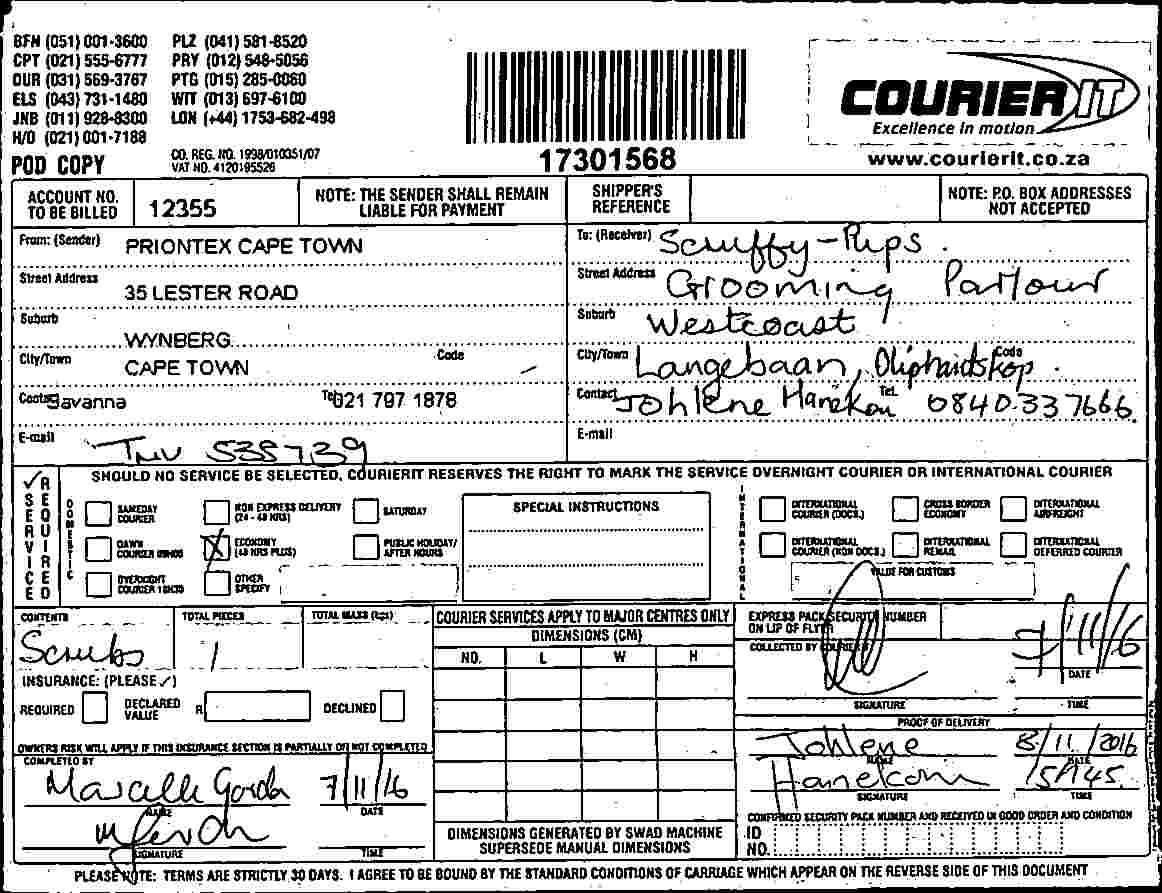 BFN (051) 001-3600 PLZ (041) 581-8520
CPT (021) 555-6777 PRY (012) 548-5056
DUR (031) 569-3767 PTG (015) 285-0060
ELS (043) 731-1480 WIT (013) 697-6100
JNB (011) 928-8300 LON (+44) 1753-682-498
H/O (021) 001-7188
POD COPY
CO. REG. NO. 1998/010351/07
VAT NO. 4120195526
17301568
COURIER IT
Excellence in motion
www.courierit.co.za
ACCOUNT NO. TO BE BILLED 12355
NOTE: THE SENDER SHALL REMAIN LIABLE FOR PAYMENT
SHIPPER'S REFERENCE
NOTE: P.O. BOX ADDRESSES NOT ACCEPTED
From: (Sender) PRIONTEX CAPE TOWN
Street Address 35 LESTER ROAD
Suburb WYNBERG
City/Town CAPE TOWN Code
Contact Savanna Tel 021 797 1878
E-mail
To: (Receiver) Scruffy-Pups.
Street Address Grooming Parlour
Suburb Westcoast
City/Town Langebaan, Code
Contact Johlene Hanekom Tel. 0840337666
E-mail
SHOULD NO SERVICE BE SELECTED, COURIERIT RESERVES THE RIGHT TO MARK THE SERVICE OVERNIGHT COURIER OR INTERNATIONAL COURIER
✓ SERVICE REQUIRED
DOMESTIC
SAMEDAY COURIER
NON EXPRESS DELIVERY (24 - 48 HRS)
SATURDAY
DAWN COURIER 09H00
ECONOMY (48 HRS PLUS)
PUBLIC HOLIDAY/ AFTER HOURS
OVERNIGHT COURIER 10H30
OTHER SPECIFY
SPECIAL INSTRUCTIONS
INTERNATIONAL
INTERNATIONAL COURIER (DOCS.)
CROSS BORDER ECONOMY
INTERNATIONAL AIRFREIGHT
INTERNATIONAL COURIER (NON DOCS.)
INTERNATIONAL REMAIL
INTERNATIONAL DEFERRED COURIER
VALUE FOR CUSTOMS
CONTENTS Scrubs
TOTAL PIECES 1
TOTAL MASS (kgs)
INSURANCE: (PLEASE ✓)
REQUIRED DECLARED VALUE R DECLINED
OWNERS RISK WILL APPLY IF THIS INSURANCE SECTION IS PARTIALLY OR NOT COMPLETED
COMPLETED BY
7/11/16
NAME DATE
SIGNATURE TIME
COURIER SERVICES APPLY TO MAJOR CENTRES ONLY
DIMENSIONS (CM)
NO. L W H
DIMENSIONS GENERATED BY SWAD MACHINE SUPERSEDE MANUAL DIMENSIONS
EXPRESS PACK SECURITY NUMBER ON LIP OF FLYER
COLLECTED BY COURIER
7/11/16
DATE
SIGNATURE TIME
PROOF OF DELIVERY
Johlene 8/11/2016
NAME DATE
Hanekom 15H45
SIGNATURE TIME
CONFIRMED SECURITY PACK NUMBER AND RECEIVED IN GOOD ORDER AND CONDITION
ID NO.
PLEASE NOTE: TERMS ARE STRICTLY 30 DAYS. I AGREE TO BE BOUND BY THE STANDARD CONDITIONS OF CARRIAGE WHICH APPEAR ON THE REVERSE SIDE OF THIS DOCUMENT